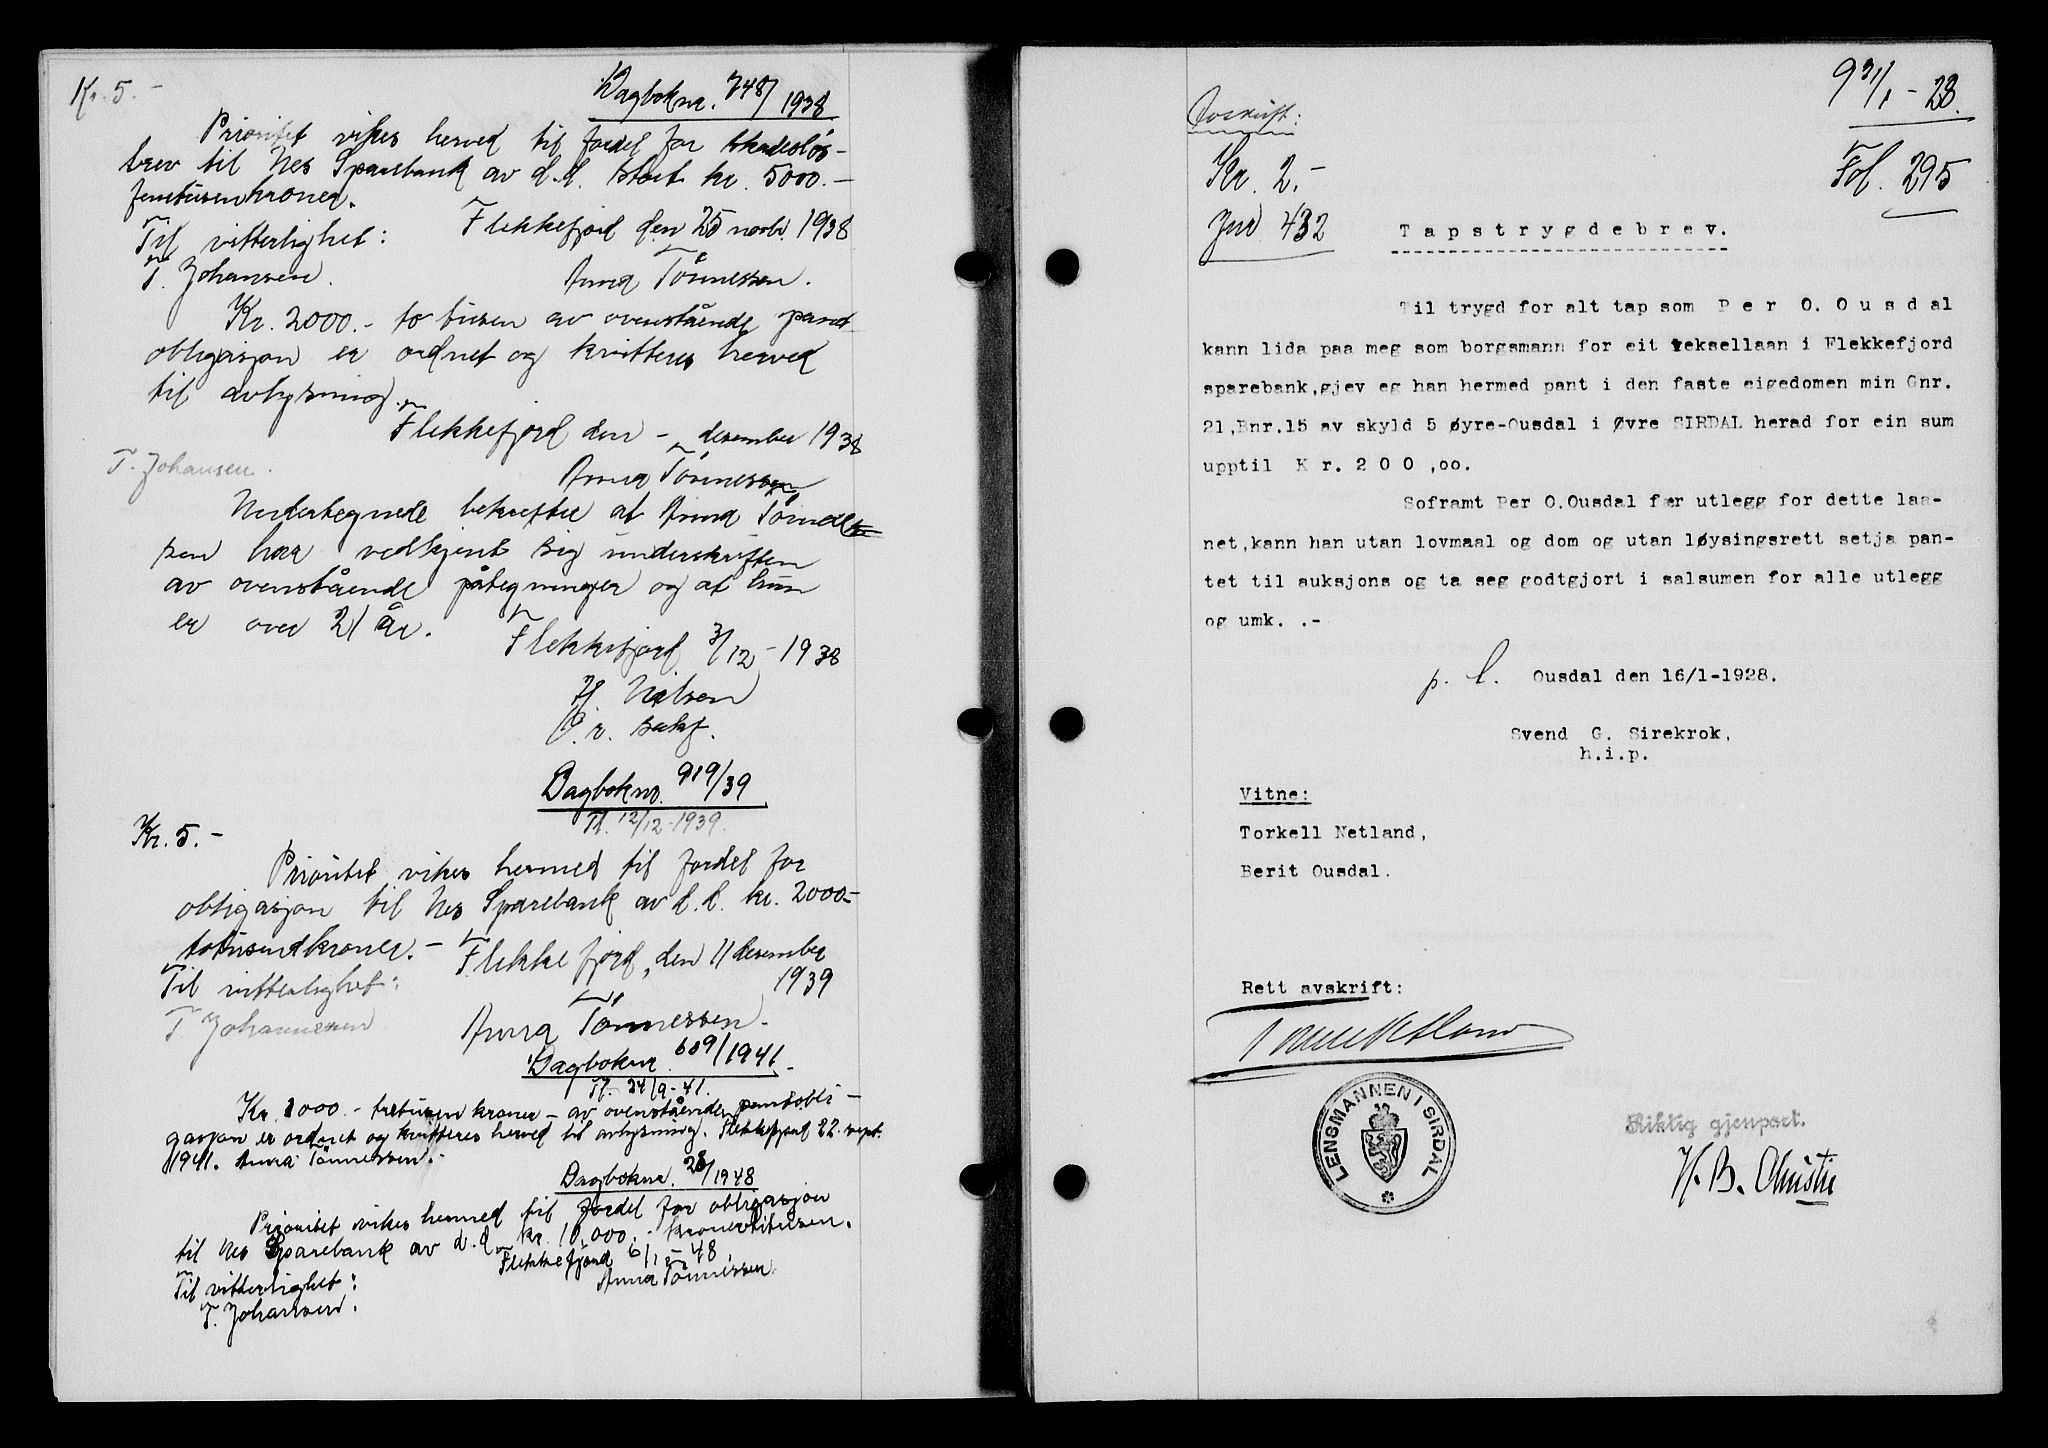 Kr. 5.-
Dagboknr. 748/1938
Prioritet vikes herved til fordel for skadesløs-
brev til Nes Sparebank av d.d. stort kr. 5000.-
femtusenkroner.
Flekkefjord den 25 novbr. 1938
Til vitterlighet:
T. Johansen.
Anna Tönnessen.
Kr. 2000.- to tusen av ovenstående pant
obligasjon er ordnet og kvitteres herved
til avlysning.
Flekkefjord den - desember 1938
T. Johansen.
Anna Tönnessen
Undertegnede bekrefter at Anna Tönnes
sen har vedkjent sig underskriften
av ovenstående påtegninger og at hun
er over 21 år.
Flekkefjord 3/12 - 1938
H. Nielsen
O.r. sakf.
Dagboknr. 919/39
Tl. 12/12-1939.
Kr. 5.-
Prioritet vikes hermed til fordel for
obligasjon til Nes Sparebank av d.d. kr. 2000.-
totusendkroner.-
Flekkefjord, den 11 desember
1939
Til vitterlighet:
T. Johannessen
Anna Tönnessen.
Dagboknr. 609/1941.
Tl. 24/9-41.
Kr. 000.- tusen kroner - av ovenstående pantobli-
gasjon er ordnet og kvitteres herved til avlysning. Flekkefjord 22. sept.
1941. Anna Tönnessen.
Dagboknr. 28/1948
Prioritet vikes hermed til fordel for obligasjon
til Nes Sparebank av d.d. kr. 10,000.- kronertitusen.
Flekkefjord 6/1-48
Til vitterlighet:
Anna Tönnessen.
T. Johansen.
931/1-28.
Avskrift:
Kr. 2.-
Fol. 295
Jnr 432
Tapstrygdebrev.
Til trygd for alt tap som Per O. Ousdal
kann lida paa meg som borgsmann for eit veksellaan i Flekkefjord
sparebank,gjev eg han hermed pant i den faste eigedomen min Gnr.
21,Bnr.15 av skyld 5 øyre-Ousdal i Øvre SIRDAL herad for ein sum
upptil Kr.200,oo.
Soframt Per O.Ousdal fær utlegg for dette laa-
net,kann han utan lovmaal og dom og utan løysingsrett setja pan-
tet til auksjons og ta seg godtgjort i salsumen for alle utlegg
og umk. .-
p. t. Ousdal den 16/1-1928.
Svend G. Sirekrok,
h.i.p.
Vitne:
Torkell Netland,
Berit Ousdal.
Rett avskrift:
LENSMANNEN I SIRDAL
Riktig gjenpart.
H. B. Christie